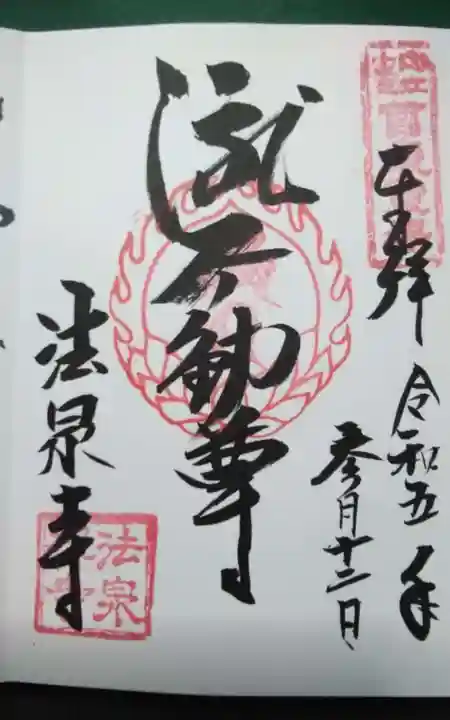 奉拝
令和五年
参月十二日
瀧不動尊
法泉寺
法泉